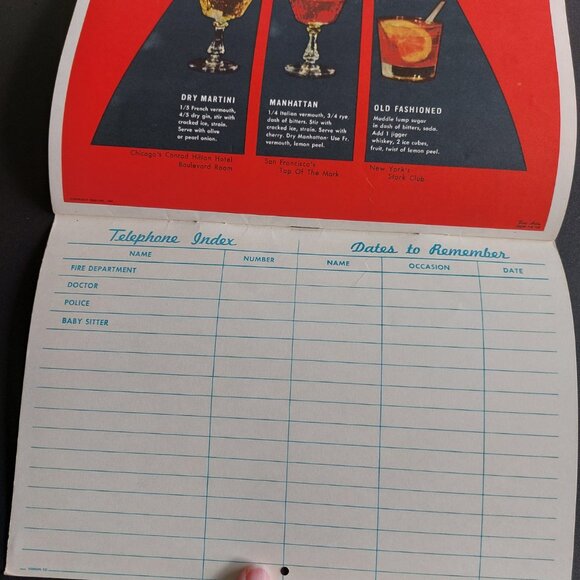 DRY MARTINI
1/5 French vermouth,
4/5 dry gin, stir with
cracked ice, strain.
Serve with olive
or pearl onion.
MANHATTAN
1/4 Italian vermouth, 3/4 rye
dash of bitters. Stir with
cracked ice, strain. Serve with
cherry. Dry Manhattan: Use Fr.
vermouth, lemon peel.
OLD FASHIONED
Muddle lump sugar
in dash of bitters, soda.
Add 1 jigger
whiskey, 2 ice cubes,
fruit, twist of lemon peel.
Chicago's Conrad Hilton Hotel
Boulevard Room
San Francisco's
Top Of The Mark
New York's
Stork Club
Telephone Index
Dates to Remember
NAME NUMBER NAME OCCASION DATE
FIRE DEPARTMENT
DOCTOR
POLICE
BABY SITTER